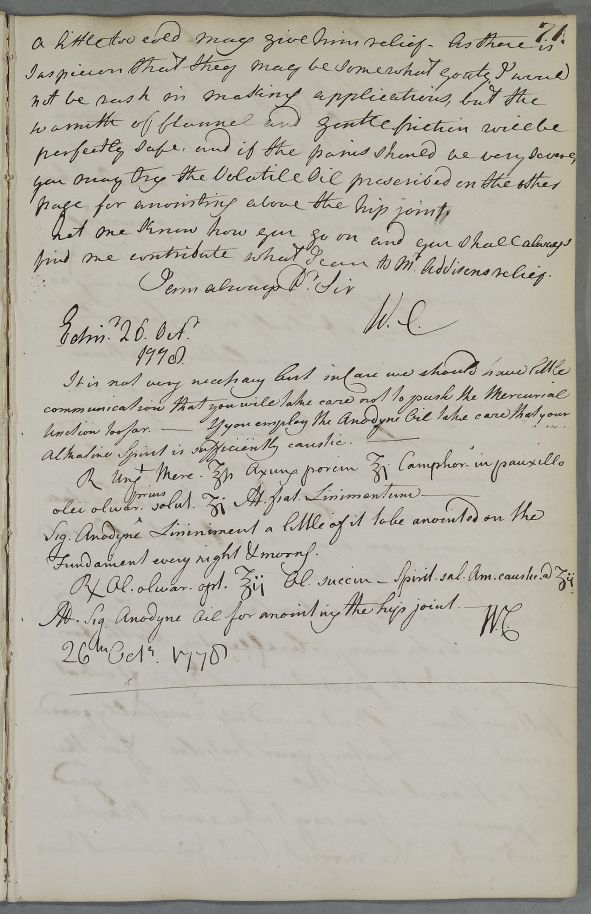 71.
a little too cold may give him relief. As there is
Suspicion that they may be somewhat gouty I would
not be rash in making applications, but the
warmth of flannel and gentle friction will be
perfectly safe, and if the pains should be very severe,
you may try the Volatile Oil prescribed on the other
page for anointing above the hip joint,
Let me know how you go on and you shall always
find me contribute what I can to Mr. Addisons relief.
I am always Dr. Sir
W. C.
Edinr. 26. Octr.
1778
It is not very necessary but in Case we should have little
communication that you will take care not to push the Mercurial
Unction too far. — If you employ the Anodyne Oil take care that your
Alkaline Spirit is sufficiently caustic.
R Ungt Merc. ʒß Axung porcin ʒj Camphor. in pauxillo
olei olivar. prius solut. ʒj M. fiat Linimentum
Sig. Anodyne Liniment a little of it to be anointed on the
Fundament every night & morng.
R Ol. olivar. opt. ʒij Ol. succin – Spirit. sal. Am. caustic. a ʒij
M. Sig Anodyne Oil for anointing the hip joint.
WC
26th Octr. 1778